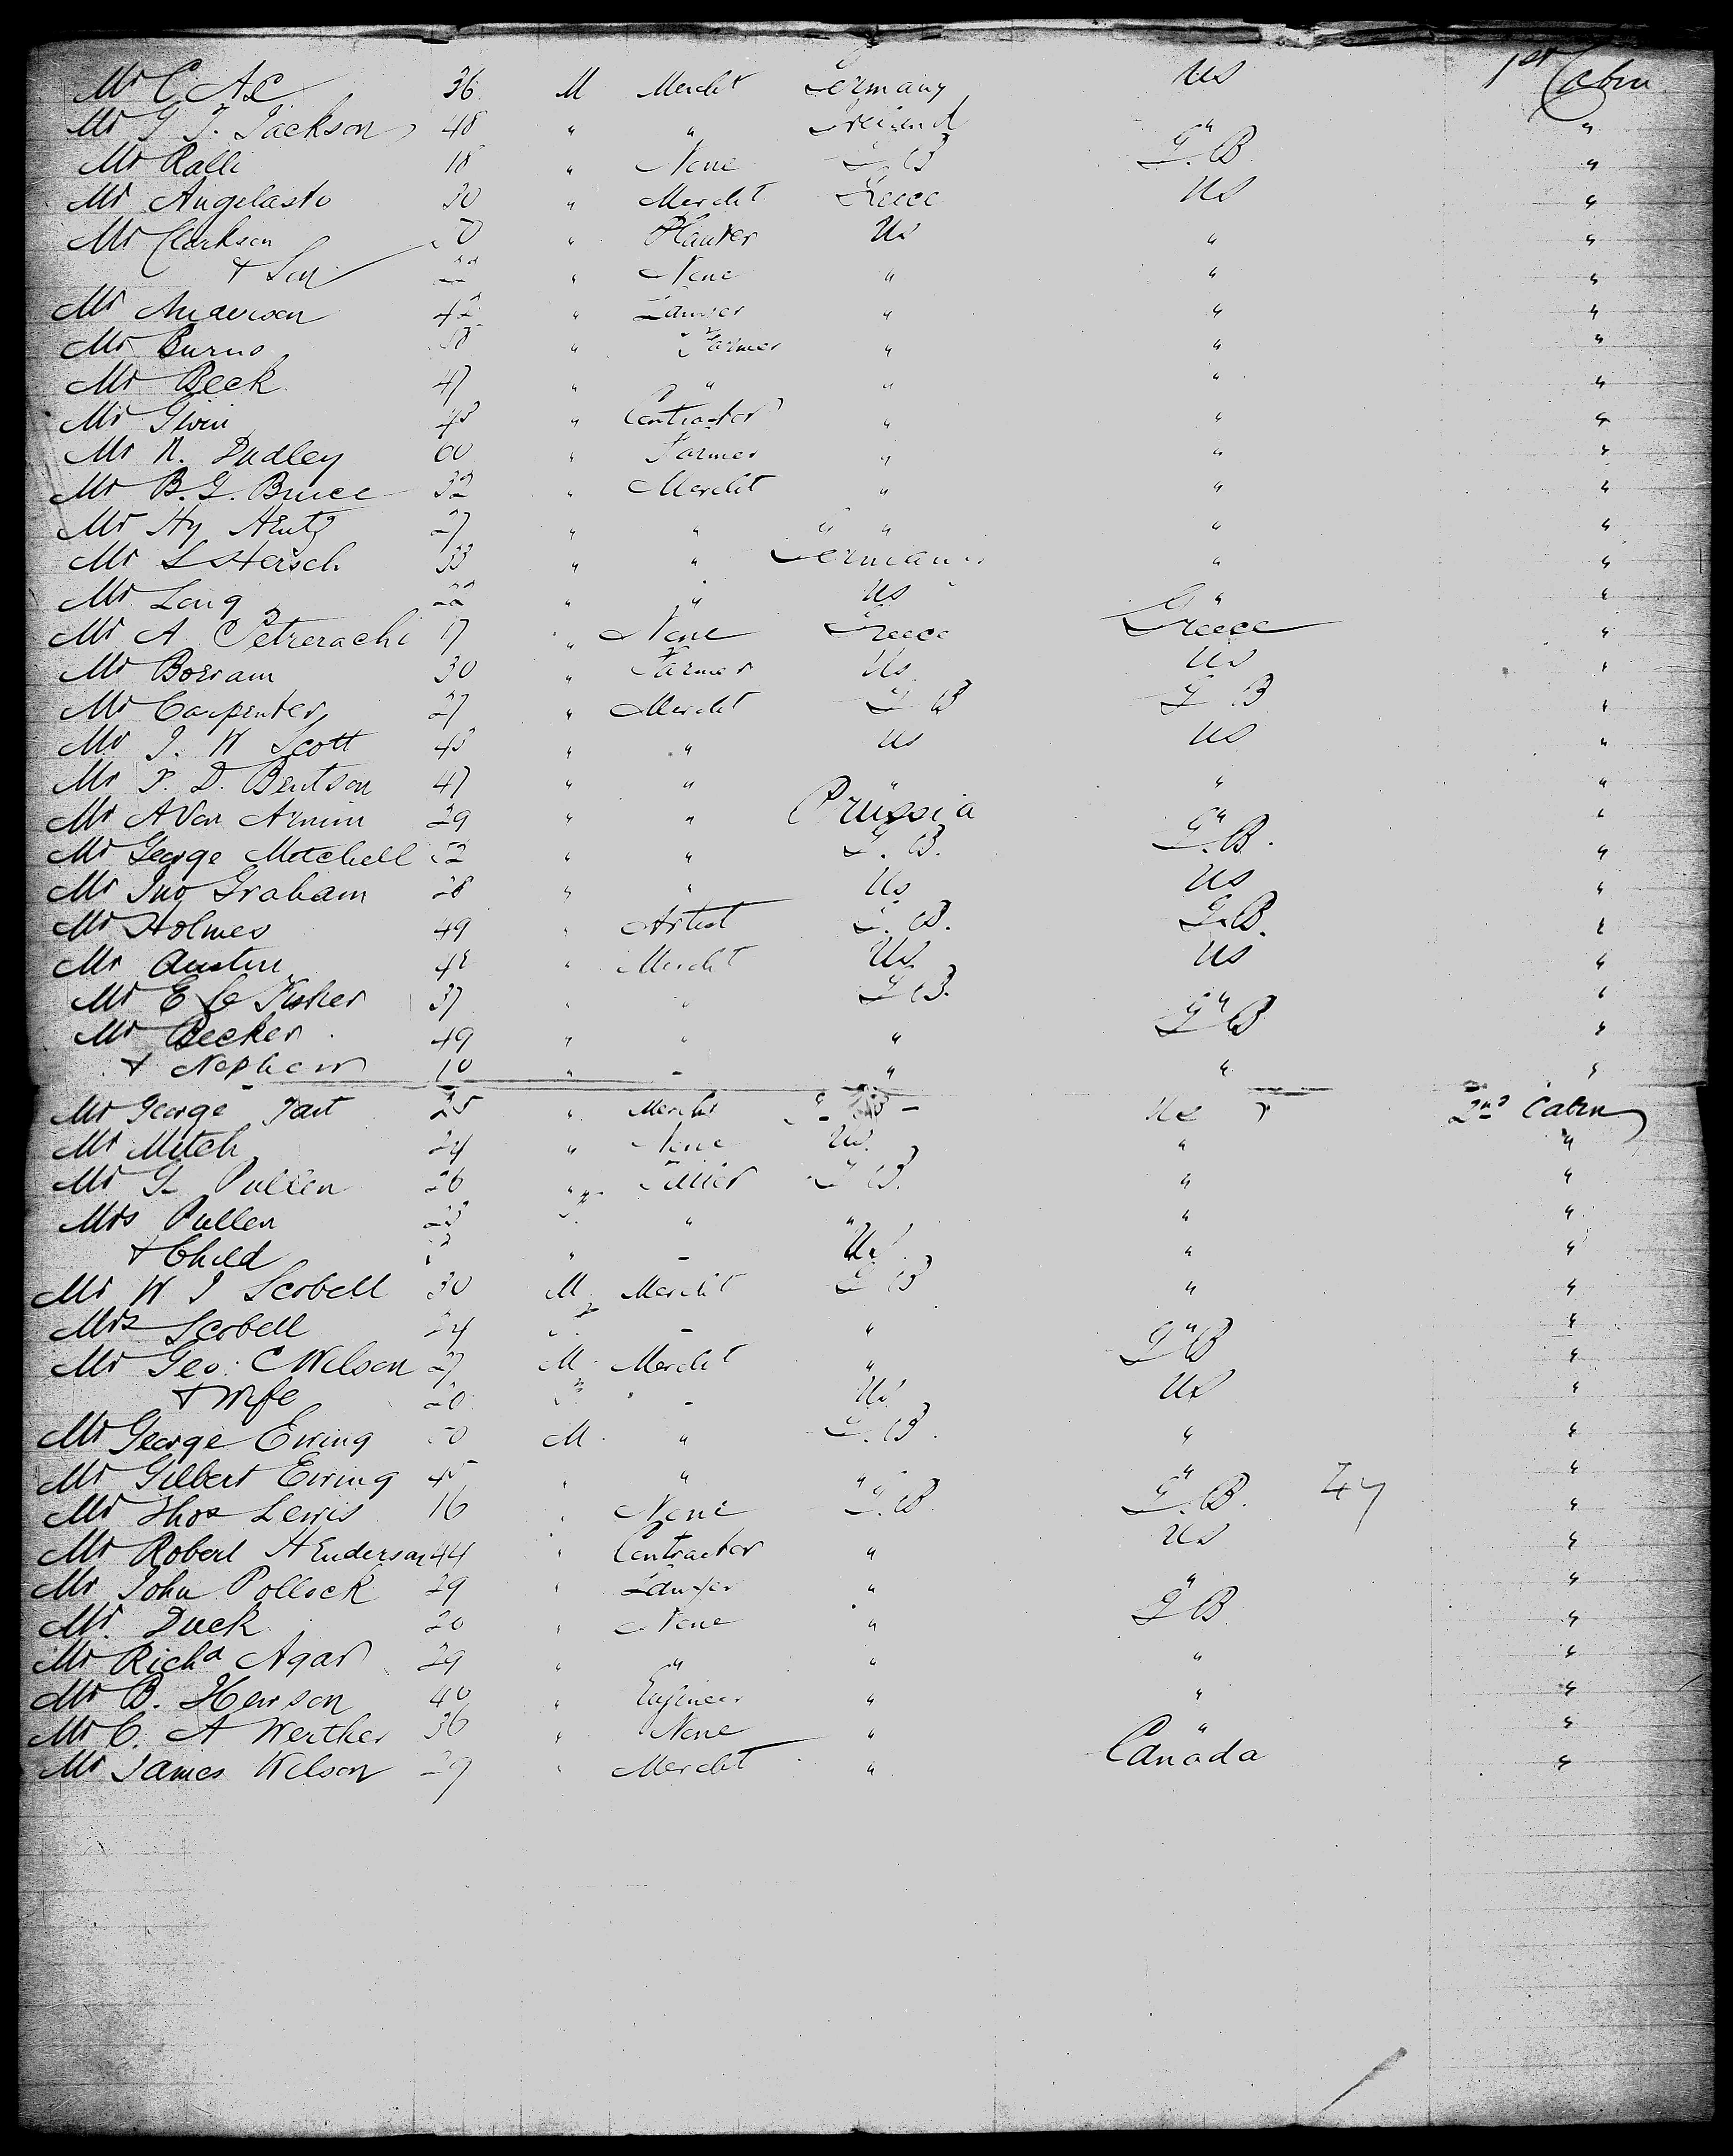 Mr C. A. C 36 M Mercht Germany US 1st Cabin
Mr G T. Jackson 48 " " Ireland " "
Mr Ralli 18 " None G. B G. B. "
Mr Angelasto 30 " Mercht Greece US "
Mr Clarkson 50 " Planter Us " "
& Son 22 " None " " "
Mr Anderson 42 " Lawyer " " "
Mr Burns 38 " Farmer " " "
Mr Beck 47 " " " " "
Mr Gwin 45 " Contractor " " "
Mr R. Dudley 60 " Farmer " " "
Mr B. G. Bruce 32 " Mercht " " "
Mr Hy Hentz 27 " " " " "
Mr L Hersch 33 " " Germany " "
Mr Long 22 " " Us " "
Mr A Petrerachi 17 " None Greece Greece "
Mr Borram 30 " Farmer Us. Us "
Mr Carpenter 27 " Mercht G B G. B "
Mr J. W Scott 45 " " Us US "
Mr F. D. Bentson 47 " " " " "
Mr A Von Arnim 29 " " Prussia " "
Mr George Mitchell 52 " " G. B. G. B. "
Mr Jno Graham 28 " " Us US "
Mr Holmes 49 " Artist G. B. G. B. "
Mr Austin 48 " Mercht Us US "
Mr E Fisher 37 " " G B. " "
Mr Becker 49 " " " G B "
& Nephew 10 " - " " "
Mr George Tait 25 " Mercht G B - Us 2nd Cabin
Mr Mitch 24 " None Us. " "
Mr G Pullen 26 " G B. " "
Mrs Pullen 23 F. " " " "
& Child " - Us " "
Mr W J Scobell 30 M Mercht G B " "
Mrs Scobell 24 F. - " " "
Mr Geo. C Wilson 27 M. Mercht " G B "
& Wife 20 F - Us Us "
Mr George Ewing 50 M. " G. B. " "
Mr Gilbert Ewing 45 " " " " "
Mr Thos Lewis 16 " None G. B. G. B. 47 "
Mr Robert Henderson 44 " Contractor " Us "
Mr John Pollock 29 " Lawyer " " "
Mr. Duck 20 " None " G B "
Mr Richd Agar 29 " " " " "
Mr B. Hewson 40 " Engineer " " "
Mr C. A Werther 36 " None " " "
Mr James Wilson 29 " Mercht " Canada "